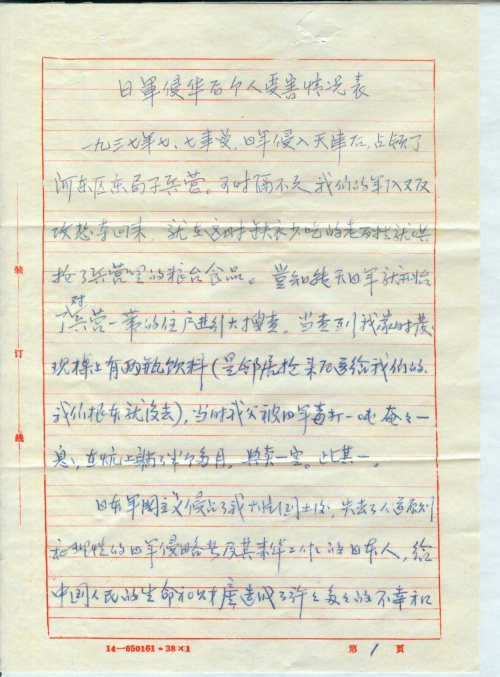 日軍侵华后个人受害情况表
一九三七年七、七事变，日军侵入天津后，占领了
河东区东局子兵营。可时隔不久我们的军队又反
攻 回来，就在这时缺衣少吃的老百姓就哄
抢了兵营里的粮台食品。岂知 天日军就开始
对
了兵营一带的住户进行大搜查。当查到我家时发
现棹上有两瓶饮料(是邻居抢来后送给我们的.
我们根本就没去)，当时我父被日军毒打一顿奄奄一
息，在炕上躺了半个多月，典卖一空。此其一。
日本军国主义侵占了我大片国土后，失去了人道原则
和理性的日军侵略者及其来华工作的日本人，给
中国人民的生命和财產造成了许许多多的不幸和
裝
订
线
14—650161·28×1
第 1 頁